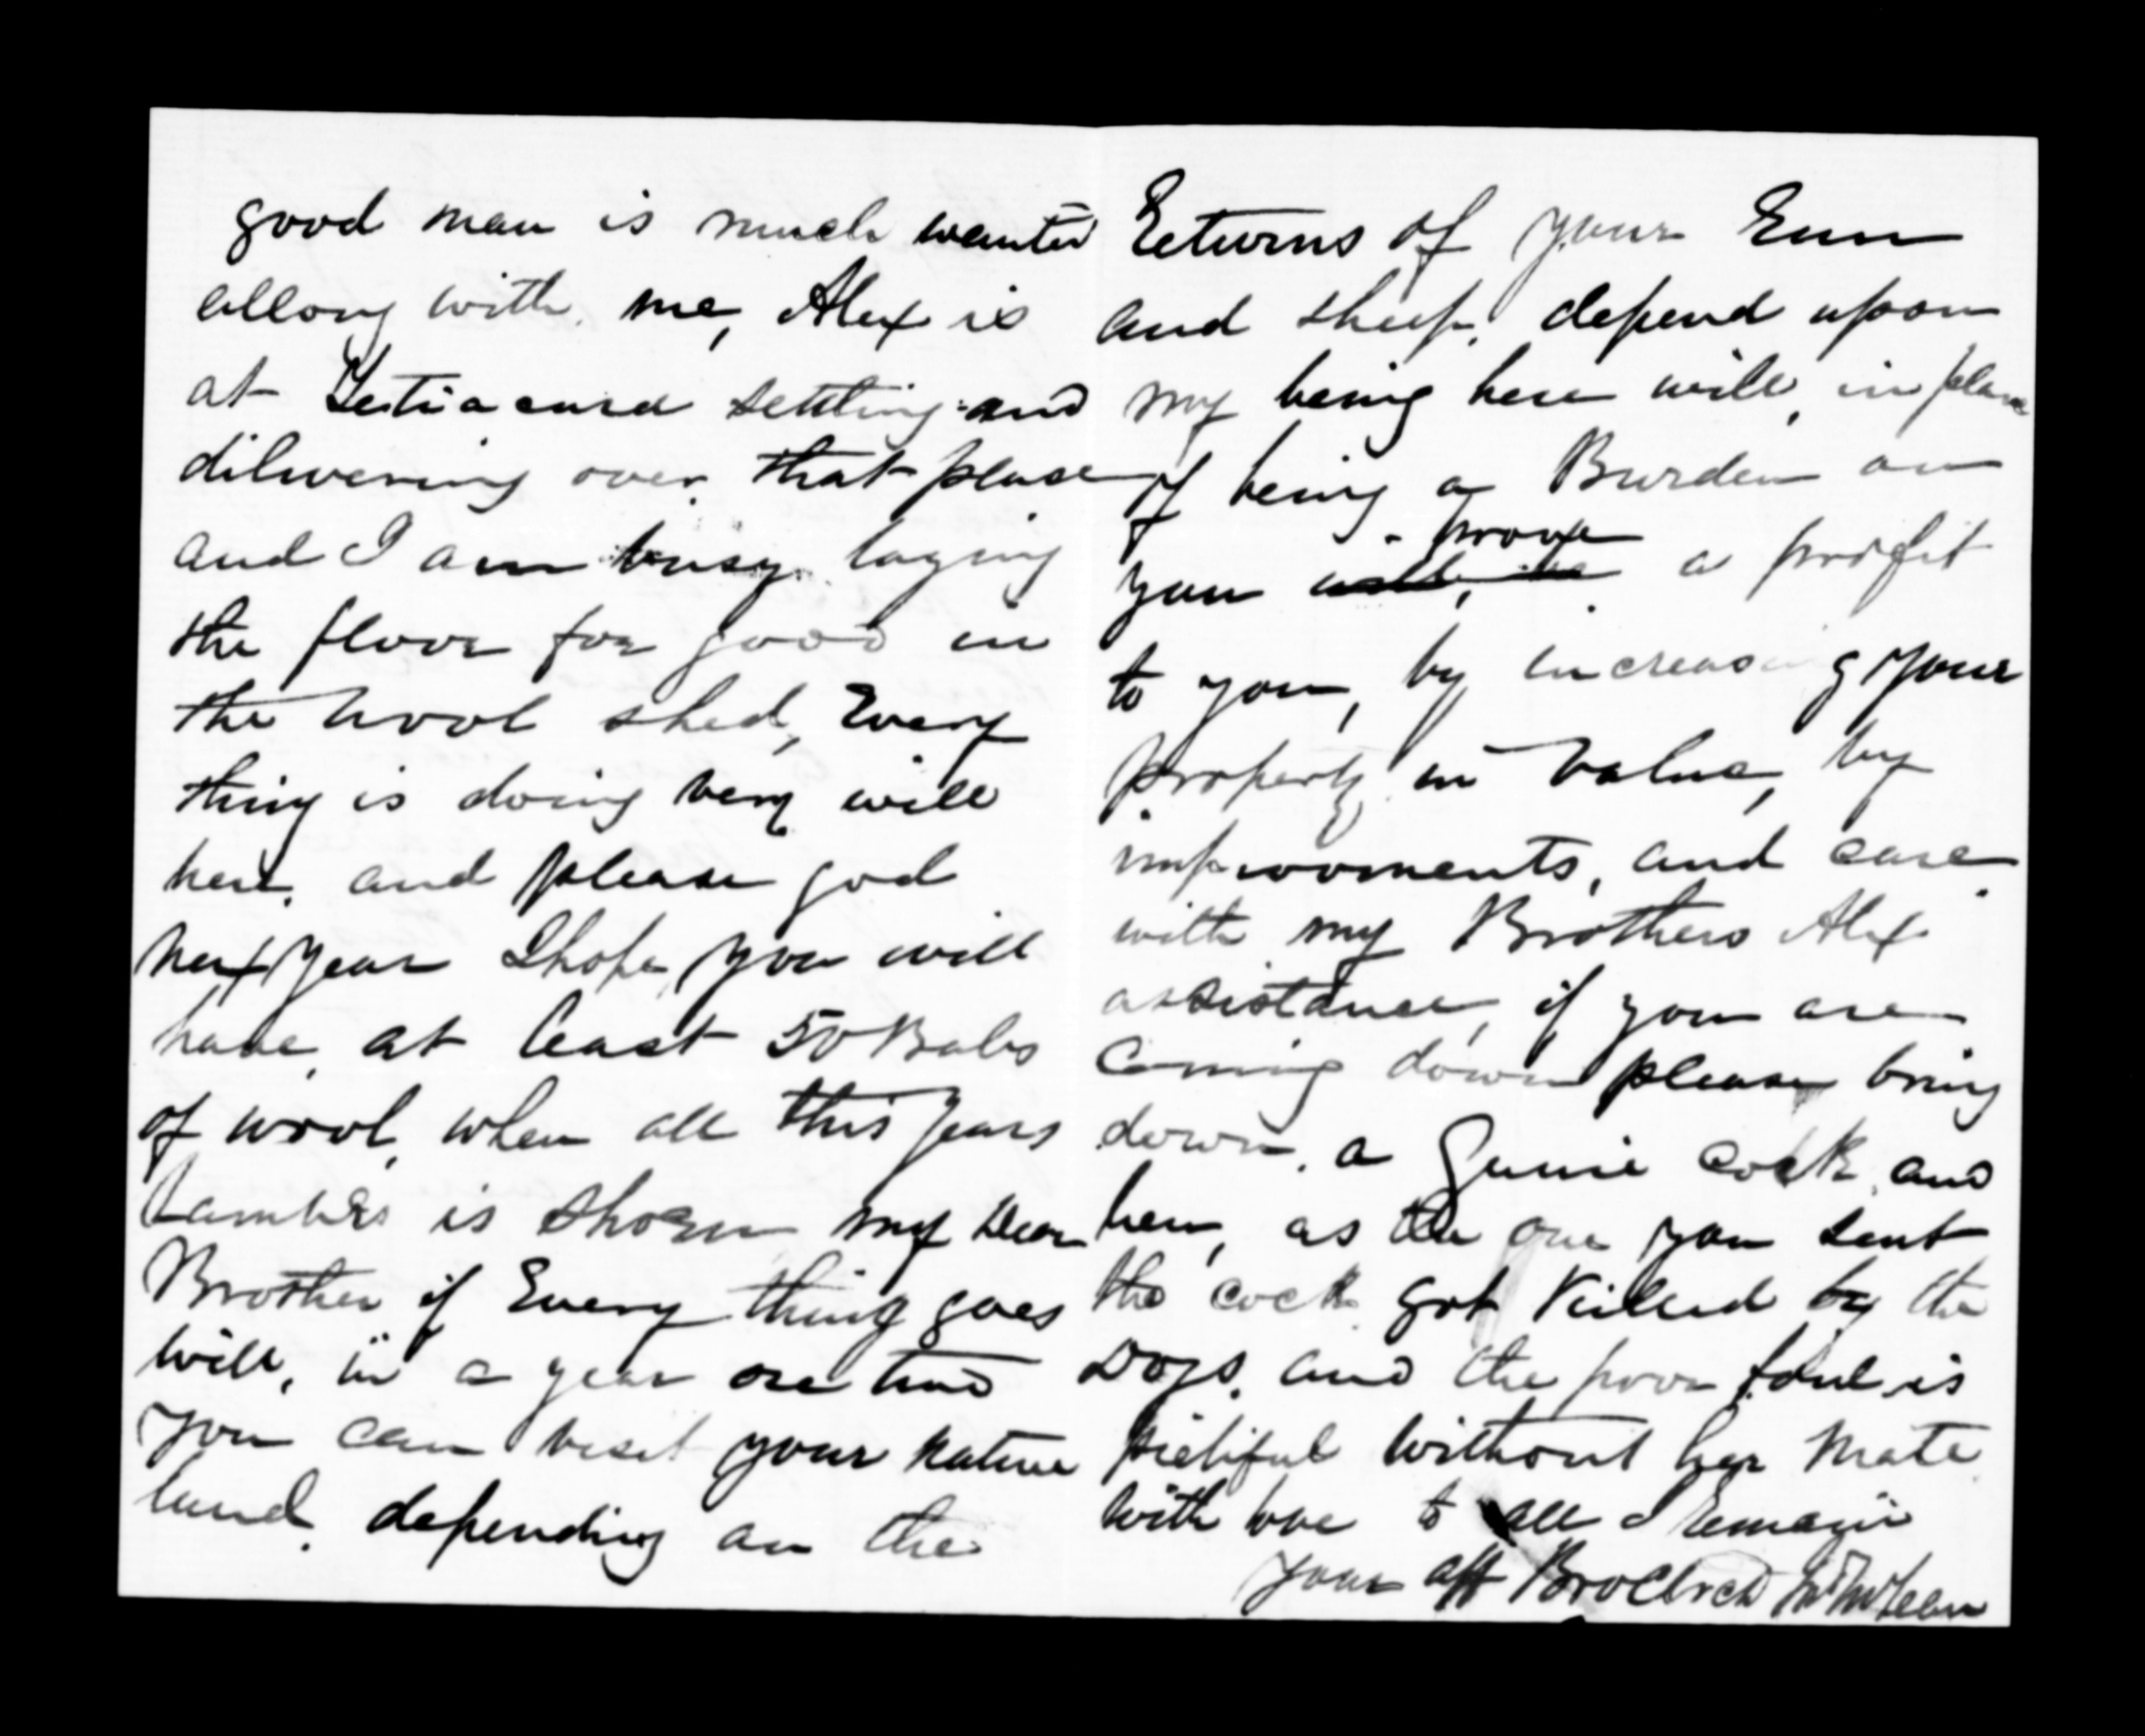 good man is much wanted
allong with me, Alex is
at settling and
dilivering over that place
and I am busy laying
the floor for good in
the wool shed, Every
thing is doing very will
here, and please god
next year I hope you will
have at least 50 Bales
of wool, when all this years
Lambes is shorn my Dear
Brother if Every thing goes
will, in a year ore two
you can visit your native
land, depending on the
Returns of your Run
and sheep, depend upon
my being here will, in place
of being a Burden on
you <s>will, be</s> prove a profit
to you, by increasing your
property in value, by
improvments, and care
with my Brothers Alex
assistance, if you are
Coming down please bring
down, a Gunie cock and
hen, as the one you sent
the cock got Killed by the
Dogs, and the poor foul is
pietiful without her mate
with love to all I Remain
your aff McLean